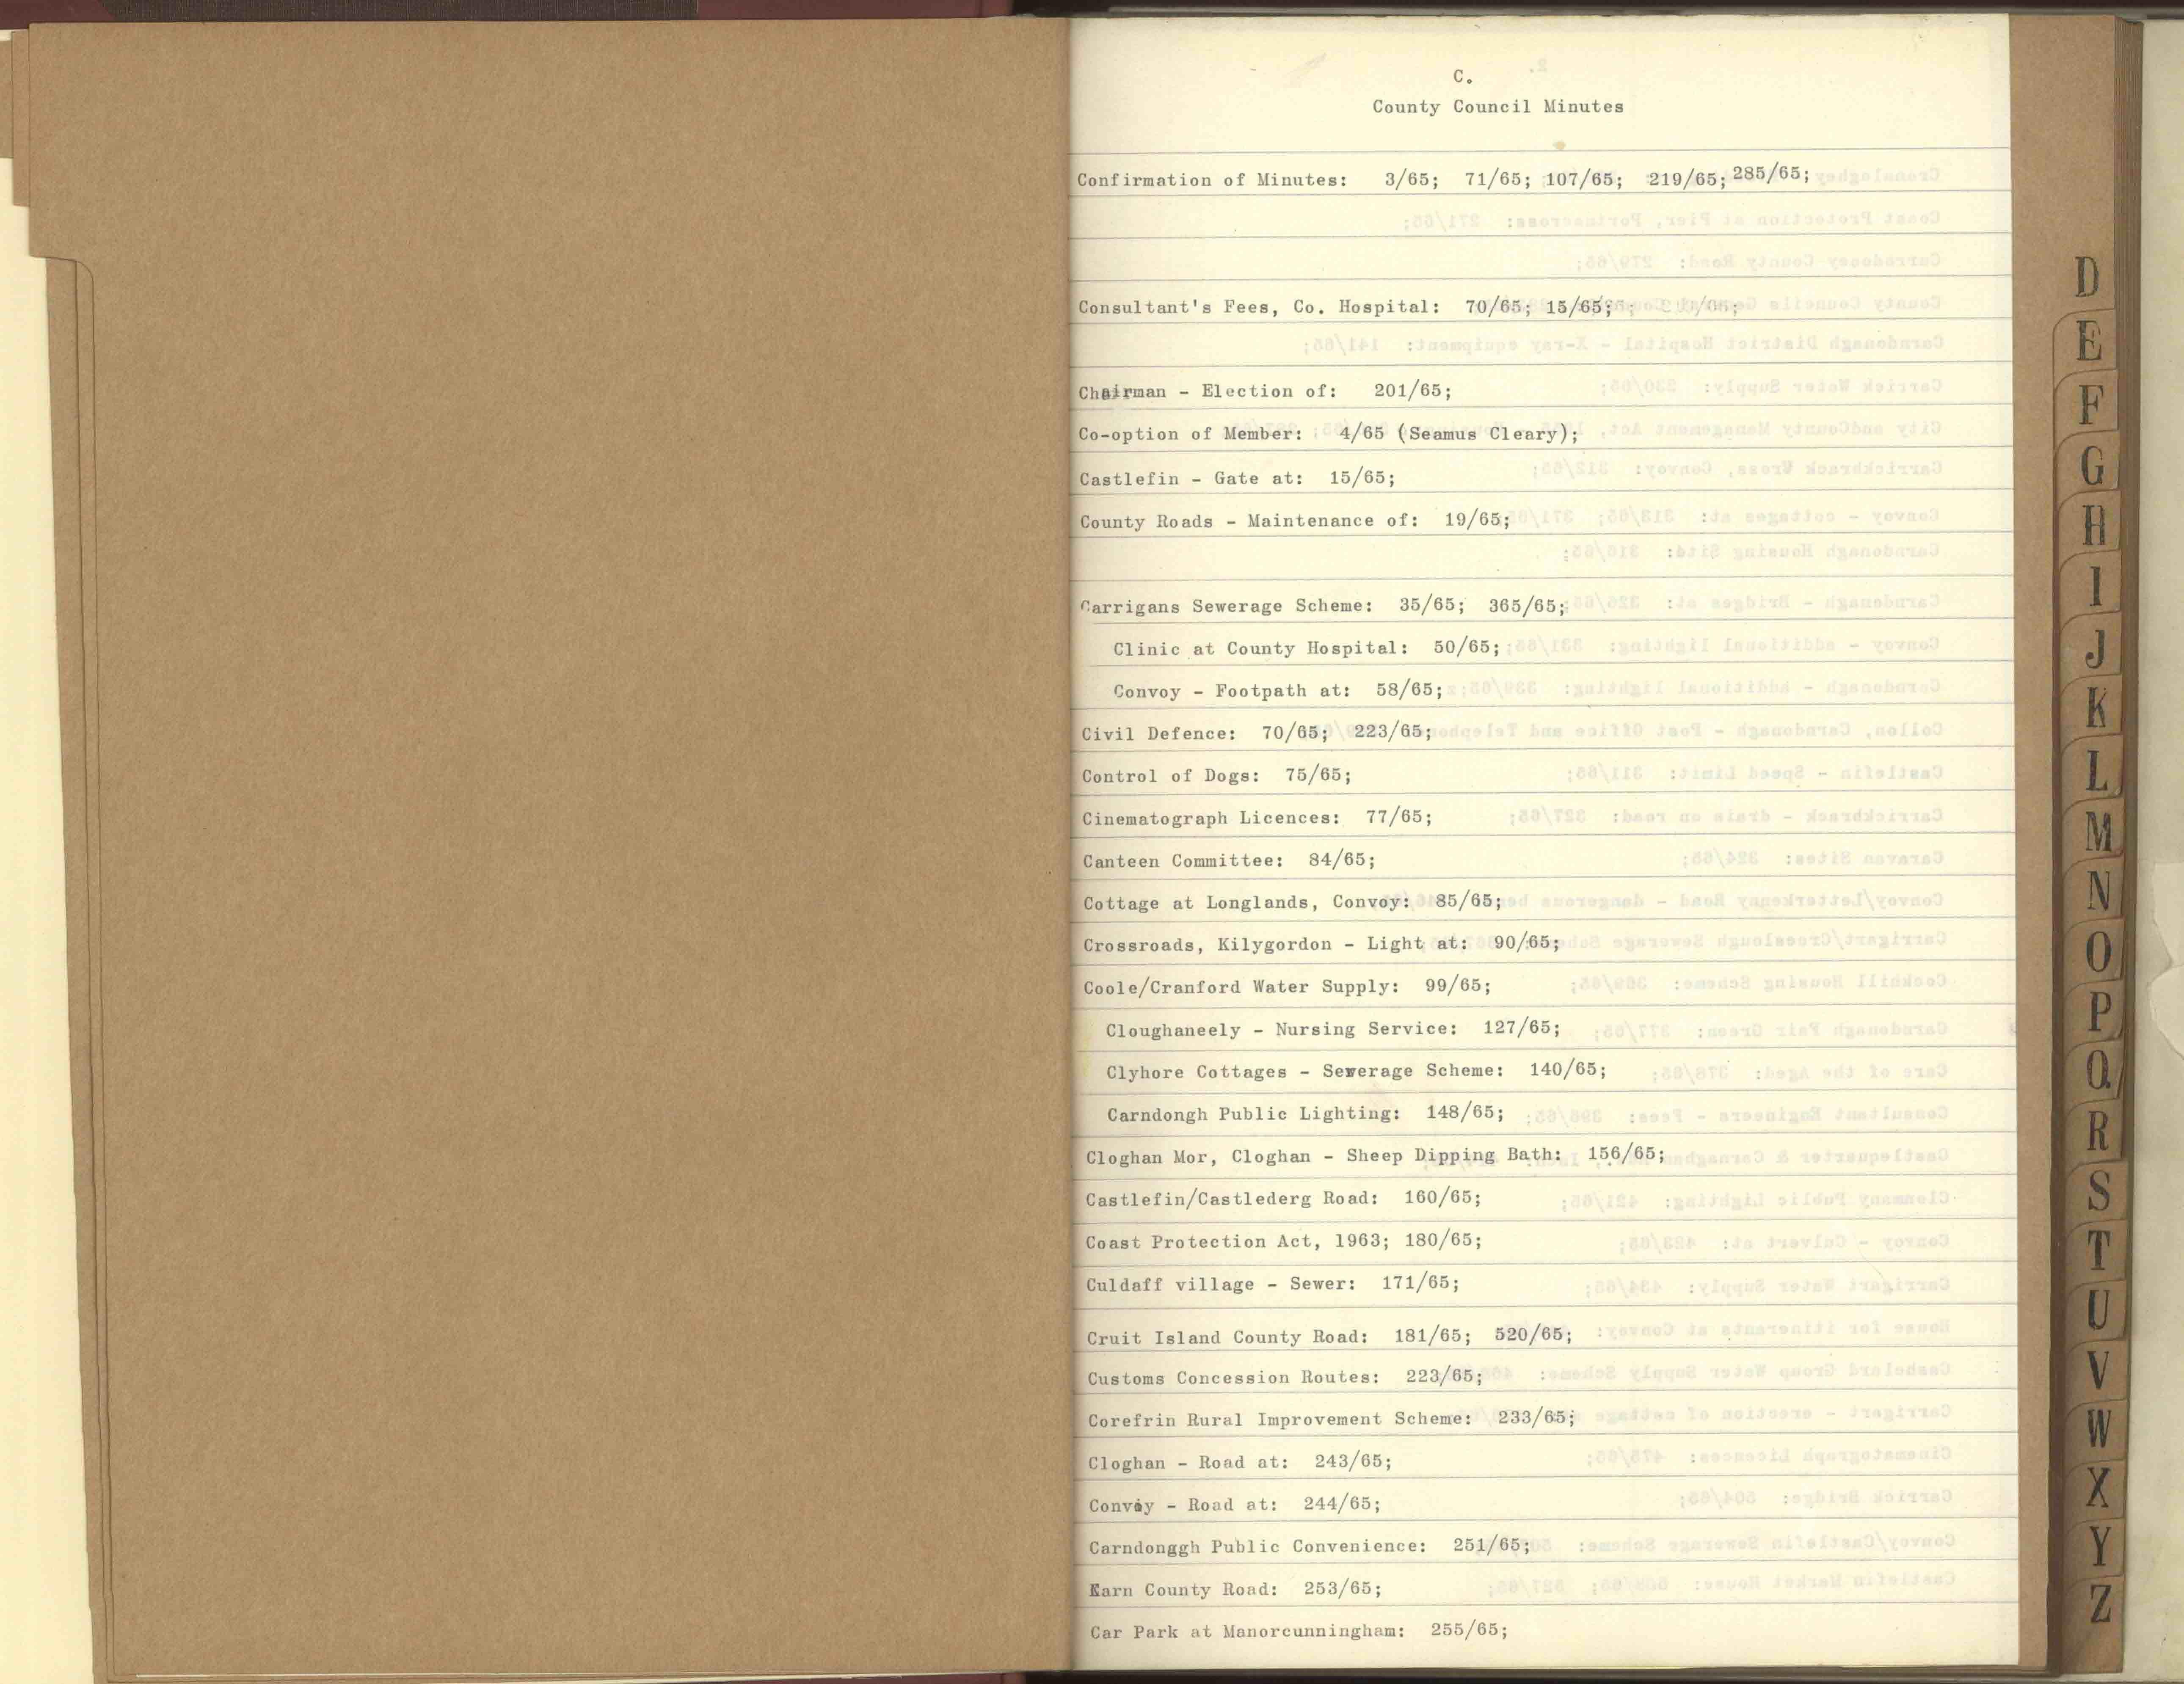 C.
County Council Minutes
Confirmation of Minutes: 3/65; 71/65; 107/65; 219/65; 285/65;
Consultant's Fees, Co. Hospital: 70/65; 15/65;
Chairman - Election of: 201/65;
Co-option of Member: 4/65 (Seamus Cleary);
Castlefin - Gate at: 15/65;
County Roads - Maintenance of: 19/65;
Carrigans Sewerage Scheme: 35/65; 365/65;
Clinic at County Hospital: 50/65;
Convoy - Footpath at: 58/65;
Civil Defence: 70/65; 223/65;
Control of Dogs: 75/65;
Cinematograph Licences: 77/65;
Canteen Committee: 84/65;
Cottage at Longlands, Convoy: 85/65;
Crossroads, Kilygordon - Light at: 90/65;
Coole/Cranford Water Supply: 99/65;
Cloughaneely - Nursing Service: 127/65;
Clyhore Cottages - Sewerage Scheme: 140/65;
Carndongh Public Lighting: 148/65;
Cloghan Mor, Cloghan - Sheep Dipping Bath: 156/65;
Castlefin/Castlederg Road: 160/65;
Coast Protection Act, 1963; 180/65;
Culdaff village - Sewer: 171/65;
Cruit Island County Road: 181/65; 520/65;
Customs Concession Routes: 223/65;
Corefrin Rural Improvement Scheme: 233/65;
Cloghan - Road at: 243/65;
Convoy - Road at: 244/65;
Carndonggh Public Convenience: 251/65;
Karn County Road: 253/65;
Car Park at Manorcunningham: 255/65;
D
E
F
G
H
I
J
K
L
M
N
O
P
Q
R
S
T
U
V
W
X
Y
Z